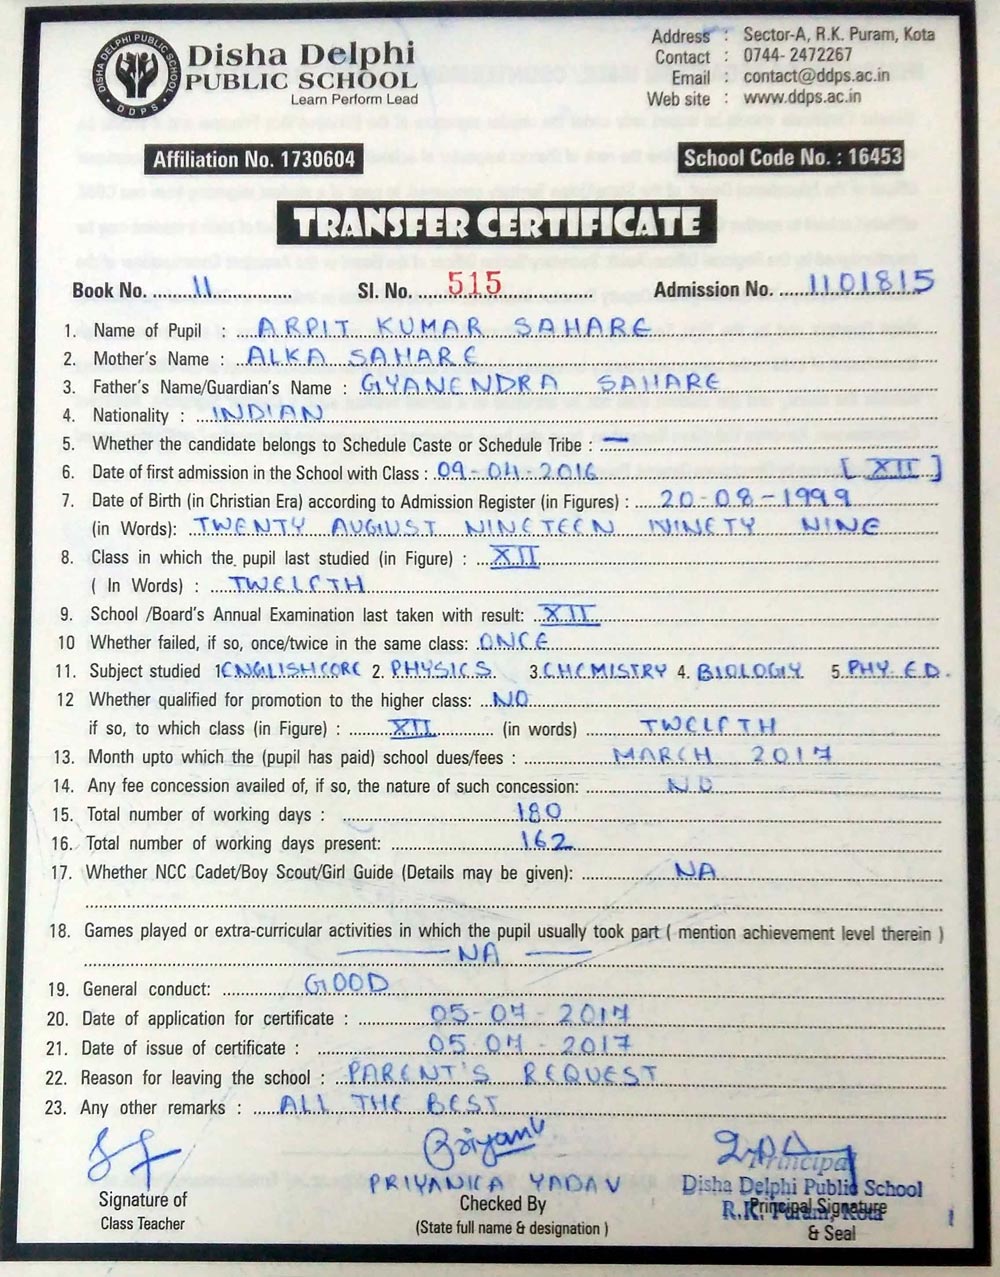 DISHA DELPHI PUBLIC SCHOOL
DDPS
Disha Delphi
PUBLIC SCHOOL
Learn Perform Lead
Address : Sector-A, R.K. Puram, Kota
Contact : 0744- 2472267
Email : contact@ddps.ac.in
Web site : www.ddps.ac.in
Affiliation No. 1730604 School Code No. : 16453
TRANSFER CERTIFICATE
Book No. 11 Sl. No. 515 Admission No. 1101815
1. Name of Pupil : ARPIT KUMAR SAHARE
2. Mother's Name : ALKA SAHARE
3. Father's Name/Guardian's Name : GYANENDRA SAHARE
4. Nationality : INDIAN
5. Whether the candidate belongs to Schedule Caste or Schedule Tribe : —
6. Date of first admission in the School with Class : 09-04-2016 [XII]
7. Date of Birth (in Christian Era) according to Admission Register (in Figures) : 20-08-1999
(in Words): TWENTY AUGUST NINETEEN NINETY NINE
8. Class in which the pupil last studied (in Figure) : XII
( In Words) : TWELFTH
9. School /Board's Annual Examination last taken with result: XII
10 Whether failed, if so, once/twice in the same class: ONCE
11. Subject studied 1. ENGLISH CORE 2. PHYSICS. 3. CHEMISTRY 4. BIOLOGY 5. PHY. ED.
12 Whether qualified for promotion to the higher class: NO
if so, to which class (in Figure) : XII (in words) TWELFTH
13. Month upto which the (pupil has paid) school dues/fees : MARCH 2017
14. Any fee concession availed of, if so, the nature of such concession: NO
15. Total number of working days : 180
16. Total number of working days present: 162
17. Whether NCC Cadet/Boy Scout/Girl Guide (Details may be given): NA
18. Games played or extra-curricular activities in which the pupil usually took part ( mention achievement level therein )
— NA —
19. General conduct: GOOD
20. Date of application for certificate : 05-07-2017
21. Date of issue of certificate : 05-07-2017
22. Reason for leaving the school : PARENT'S REQUEST
23. Any other remarks : ALL THE BEST
Priyank
PRIYANKA YADAV
Principal
Disha Delphi Public School
R.K. Puram, Kota
Signature of
Class Teacher
Checked By
(State full name & designation )
Principal Signature
& Seal